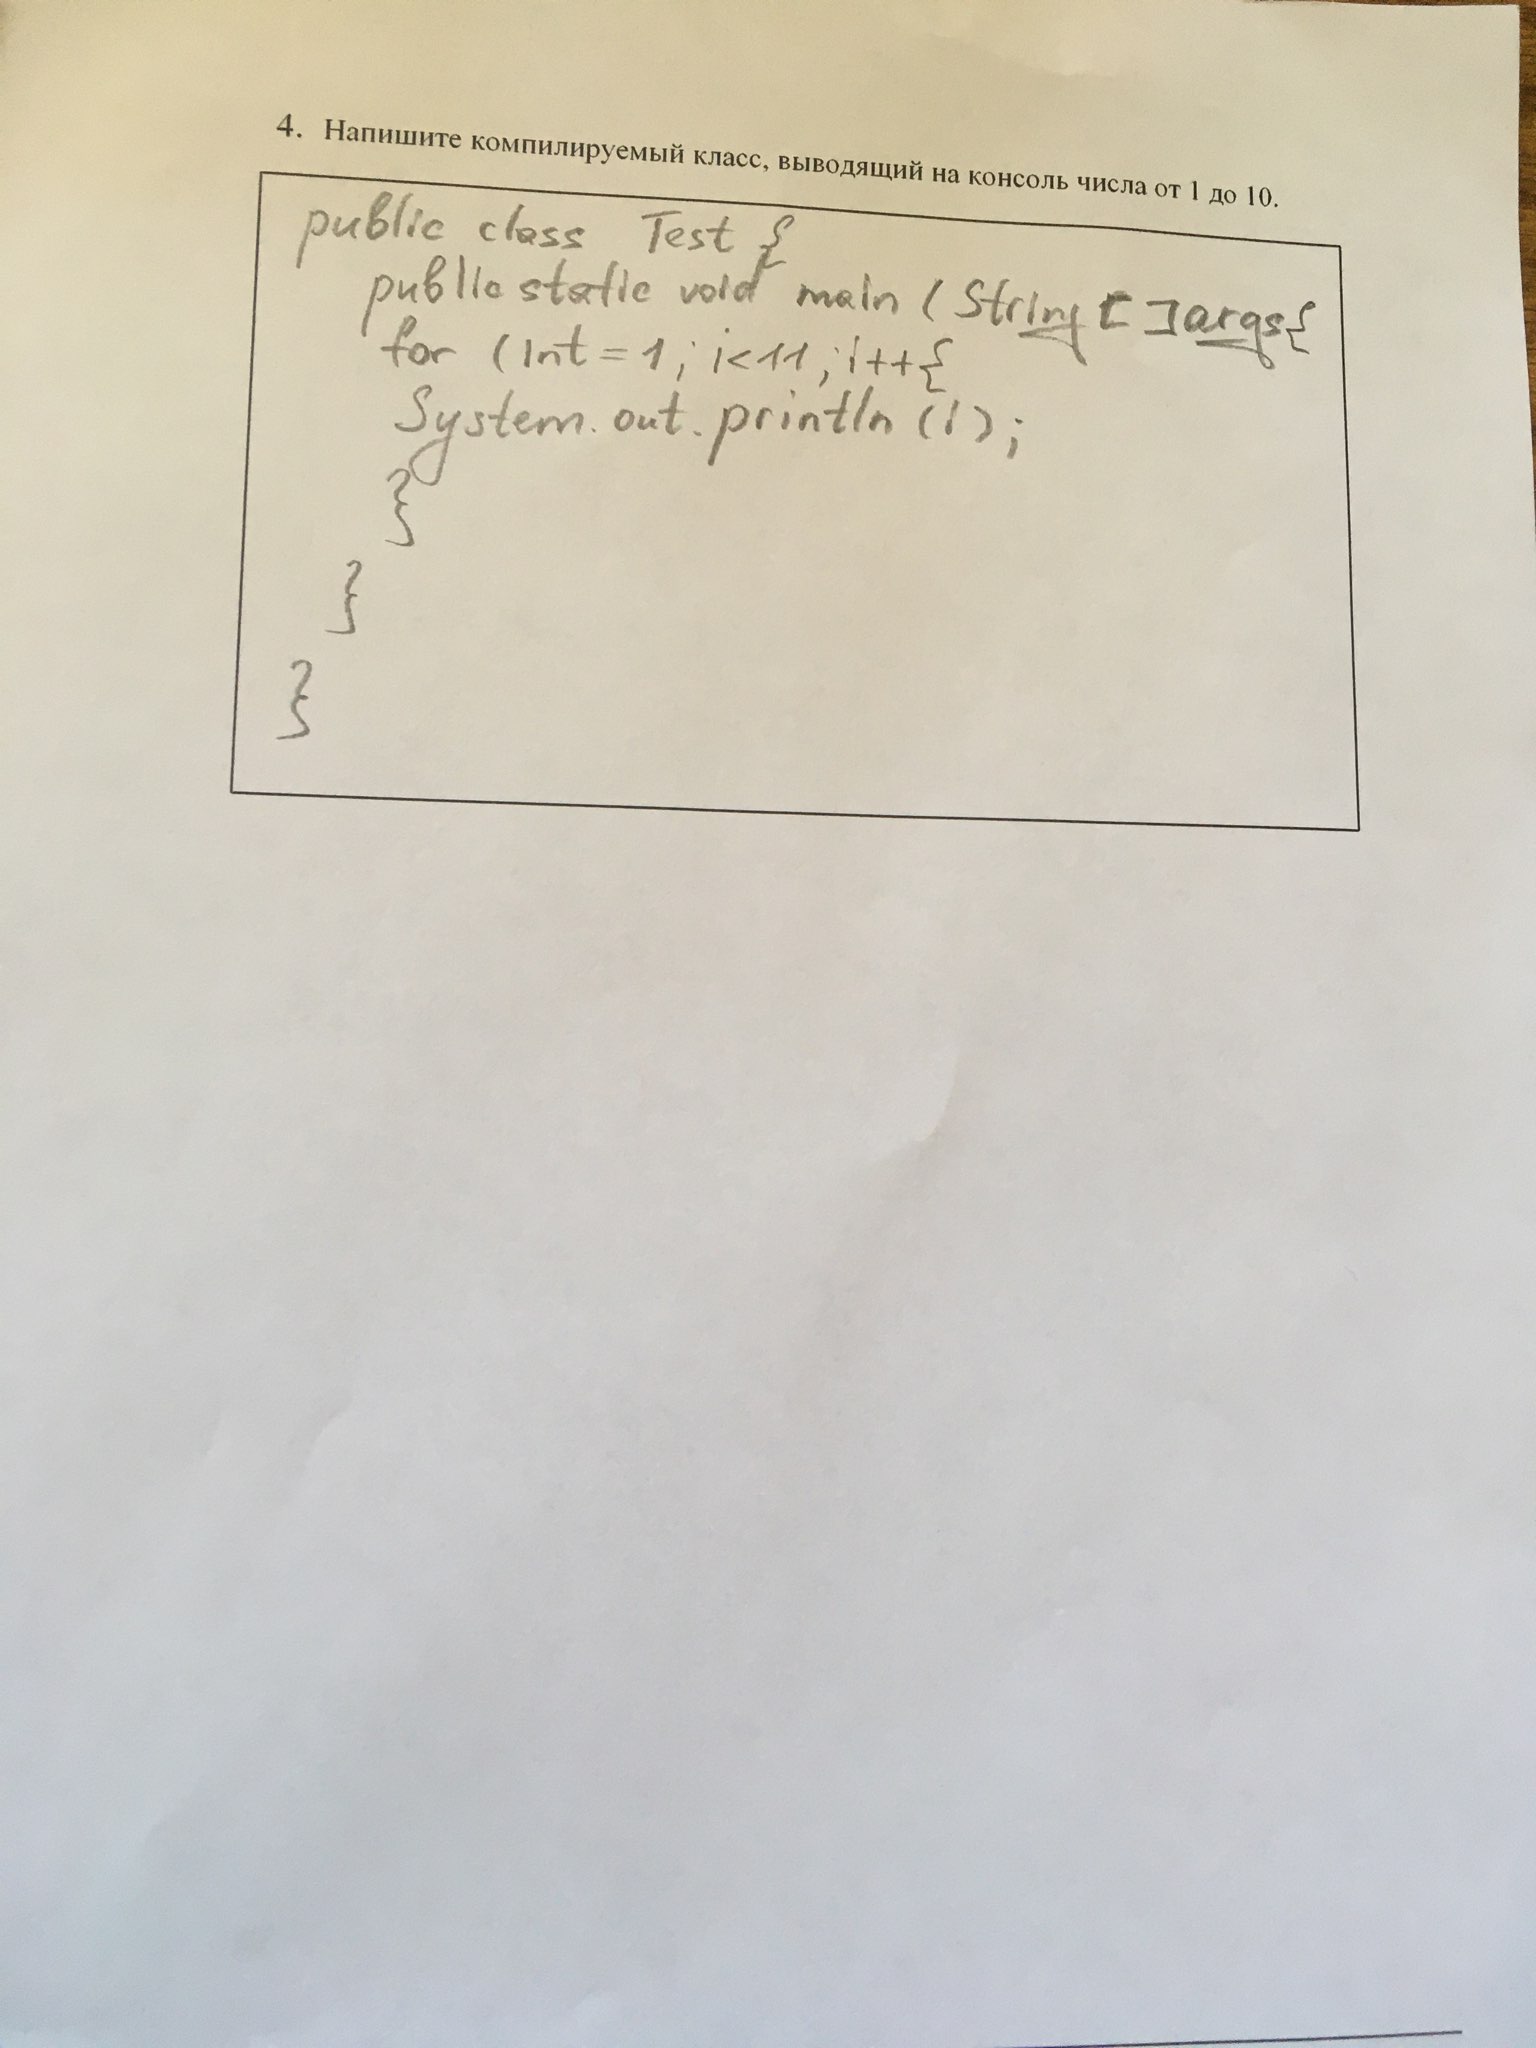 4. Напишите компилируемый класс, выводящий на консоль числа от 1 до 10.
public class Test {
public static void main (String [ ] args{
for (int = 1; i<11; i++{
System.out.println(i);
}
}
}